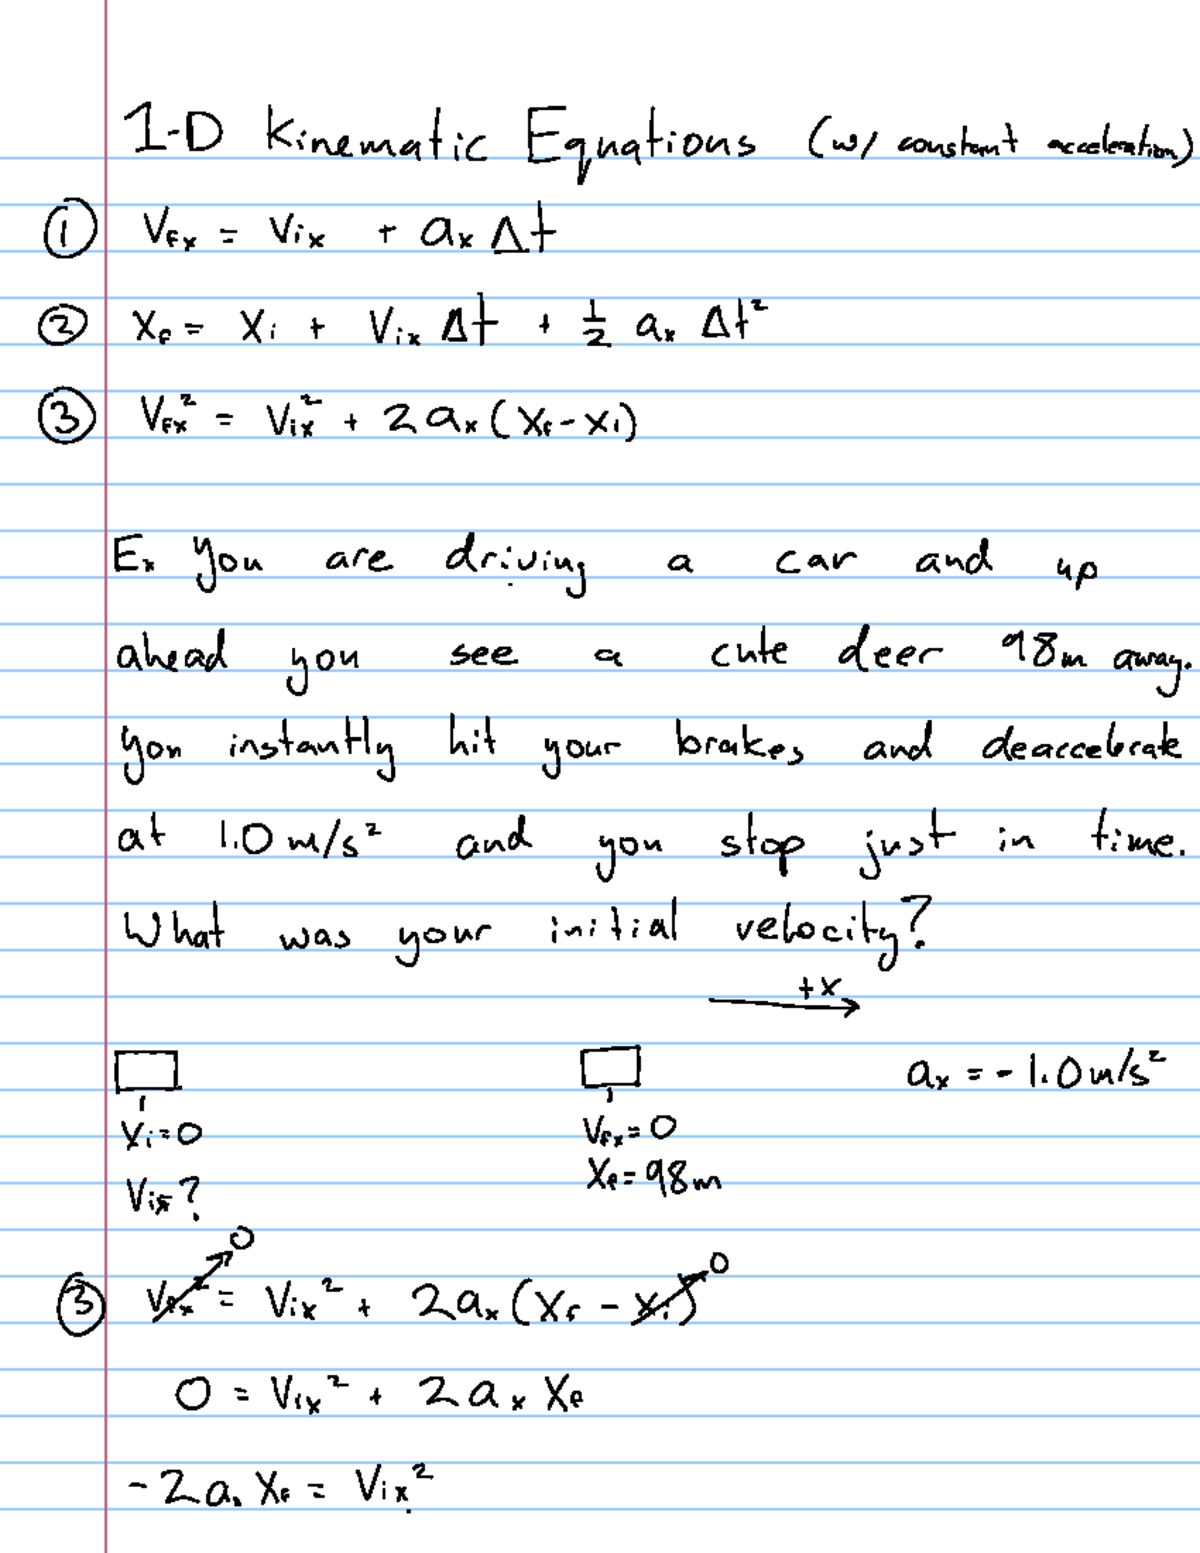 1-D Kinematic Equations (w/ constant acceleration)
① Vfx = Vix + ax Δt
② Xf = Xi + Vix Δt + 1/2 ax Δt²
③ Vfx² = Vix² + 2ax(Xf - Xi)
Ex You are driving a car and up
ahead you see a cute deer 98m away.
you instantly hit your brakes and deaccelerate
at 1.0 m/s² and you stop just in time.
What was your initial velocity?
+x
ax = -1.0 m/s²
Xi=0 Vfx=0
Vix? Xf=98m
0 0
③ Vfx² = Vix² + 2ax(Xf - Xi)
0 = Vix² + 2ax Xf
-2ax Xf = Vix²